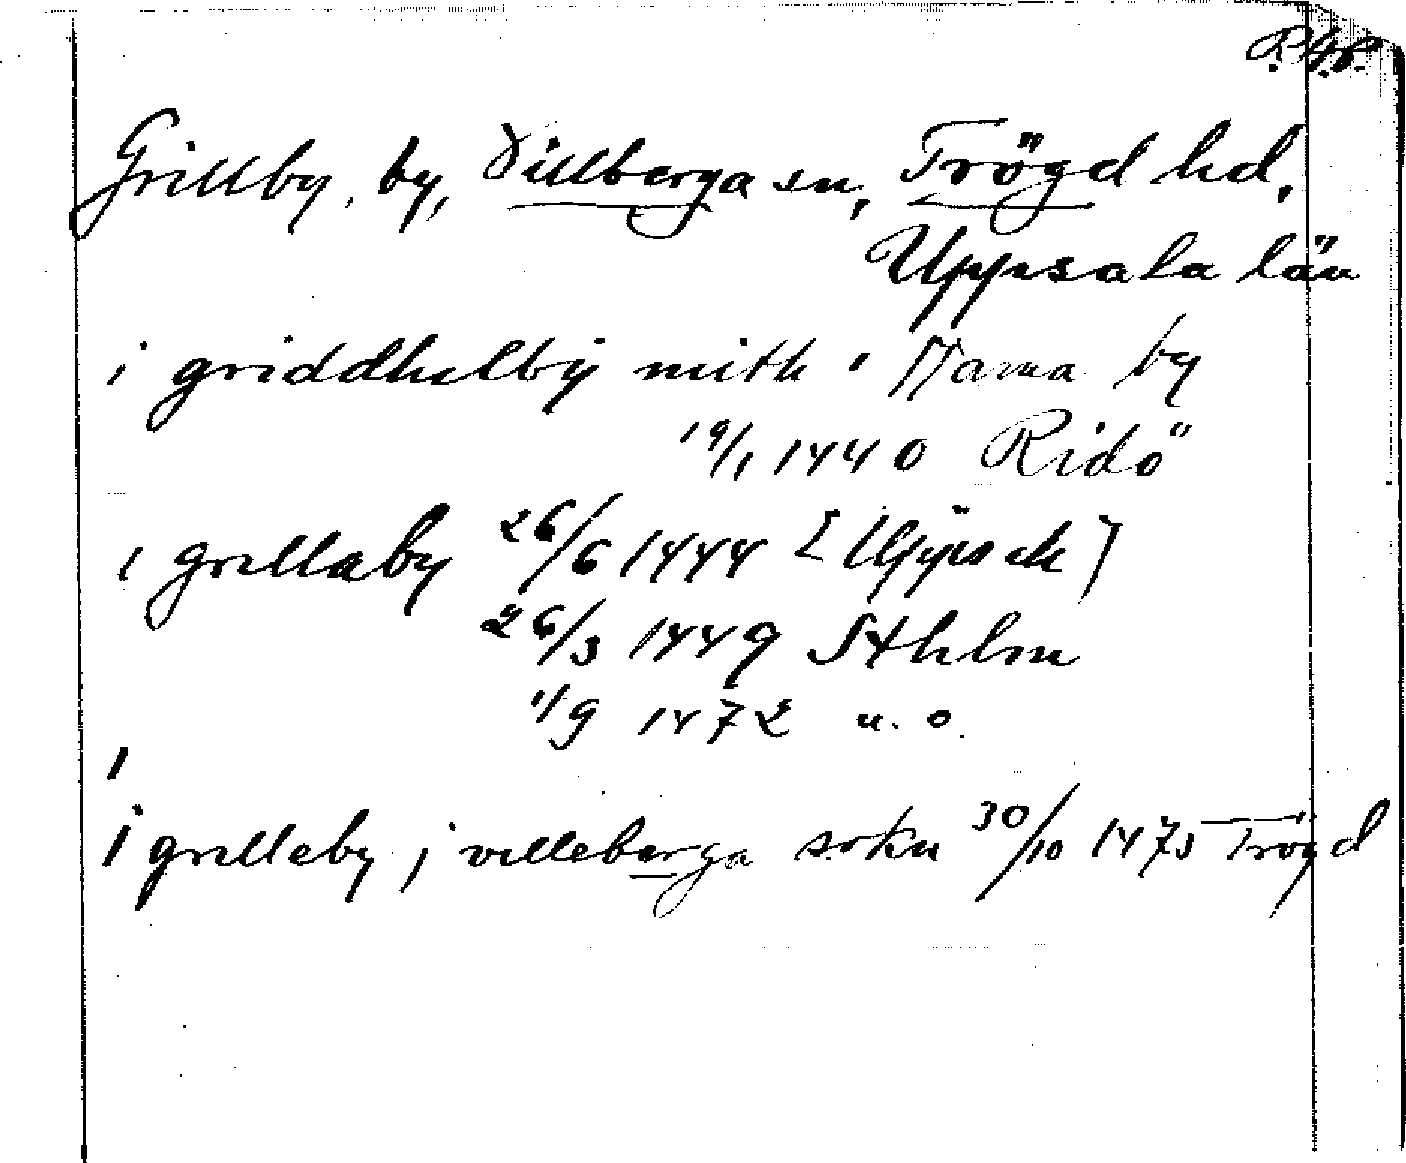 Grillby, by, Villberga sn, Trögd hd,
Uppsala län
i griddhelby mith i by
19/1 1440 Ridö
i grillaby 26/6 1444 [Uppsala]
26/3 1449 Sthlm
1/9 1472 u. o.
i grilleby j villeberga sokn 30/10 1475 Trögd